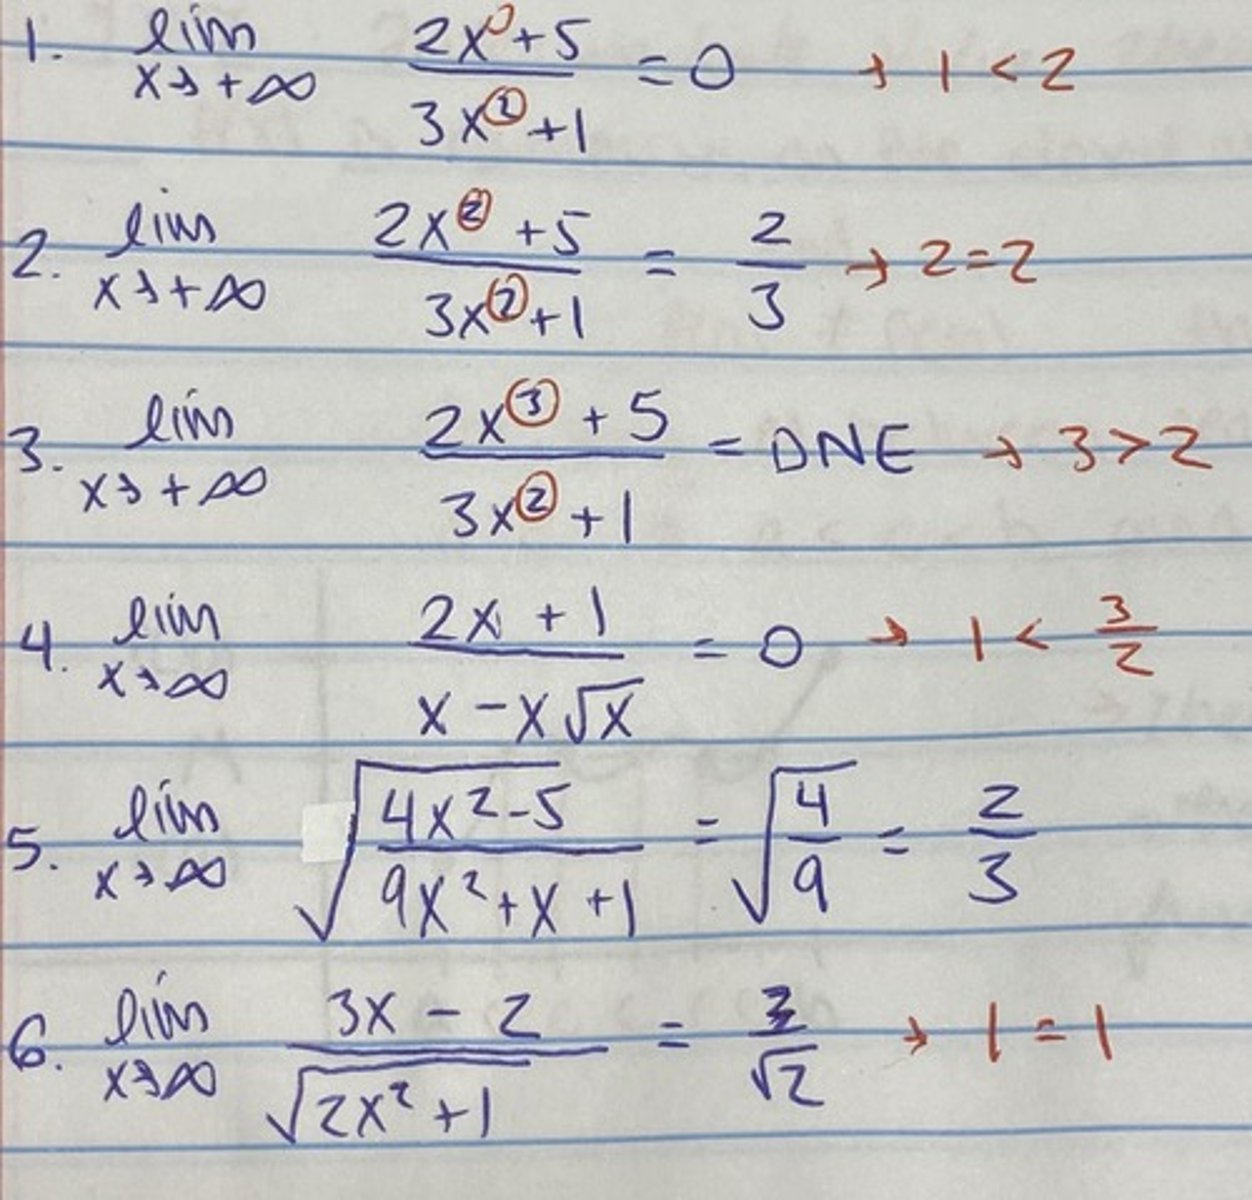 1. lim x→+∞ (2x+5)/(3x²+1) = 0 → 1 < 2
2. lim x→+∞ (2x²+5)/(3x²+1) = 2/3 → 2=2
3. lim x→+∞ (2x³+5)/(3x²+1) = DNE → 3>2
4. lim x→∞ (2x+1)/(x-x√x) = 0 → 1 < 3/2
5. lim x→∞ √((4x²-5)/(9x²+x+1)) = √(4/9) = 2/3
6. lim x→∞ (3x-2)/√(2x²+1) = 3/√2 → 1=1